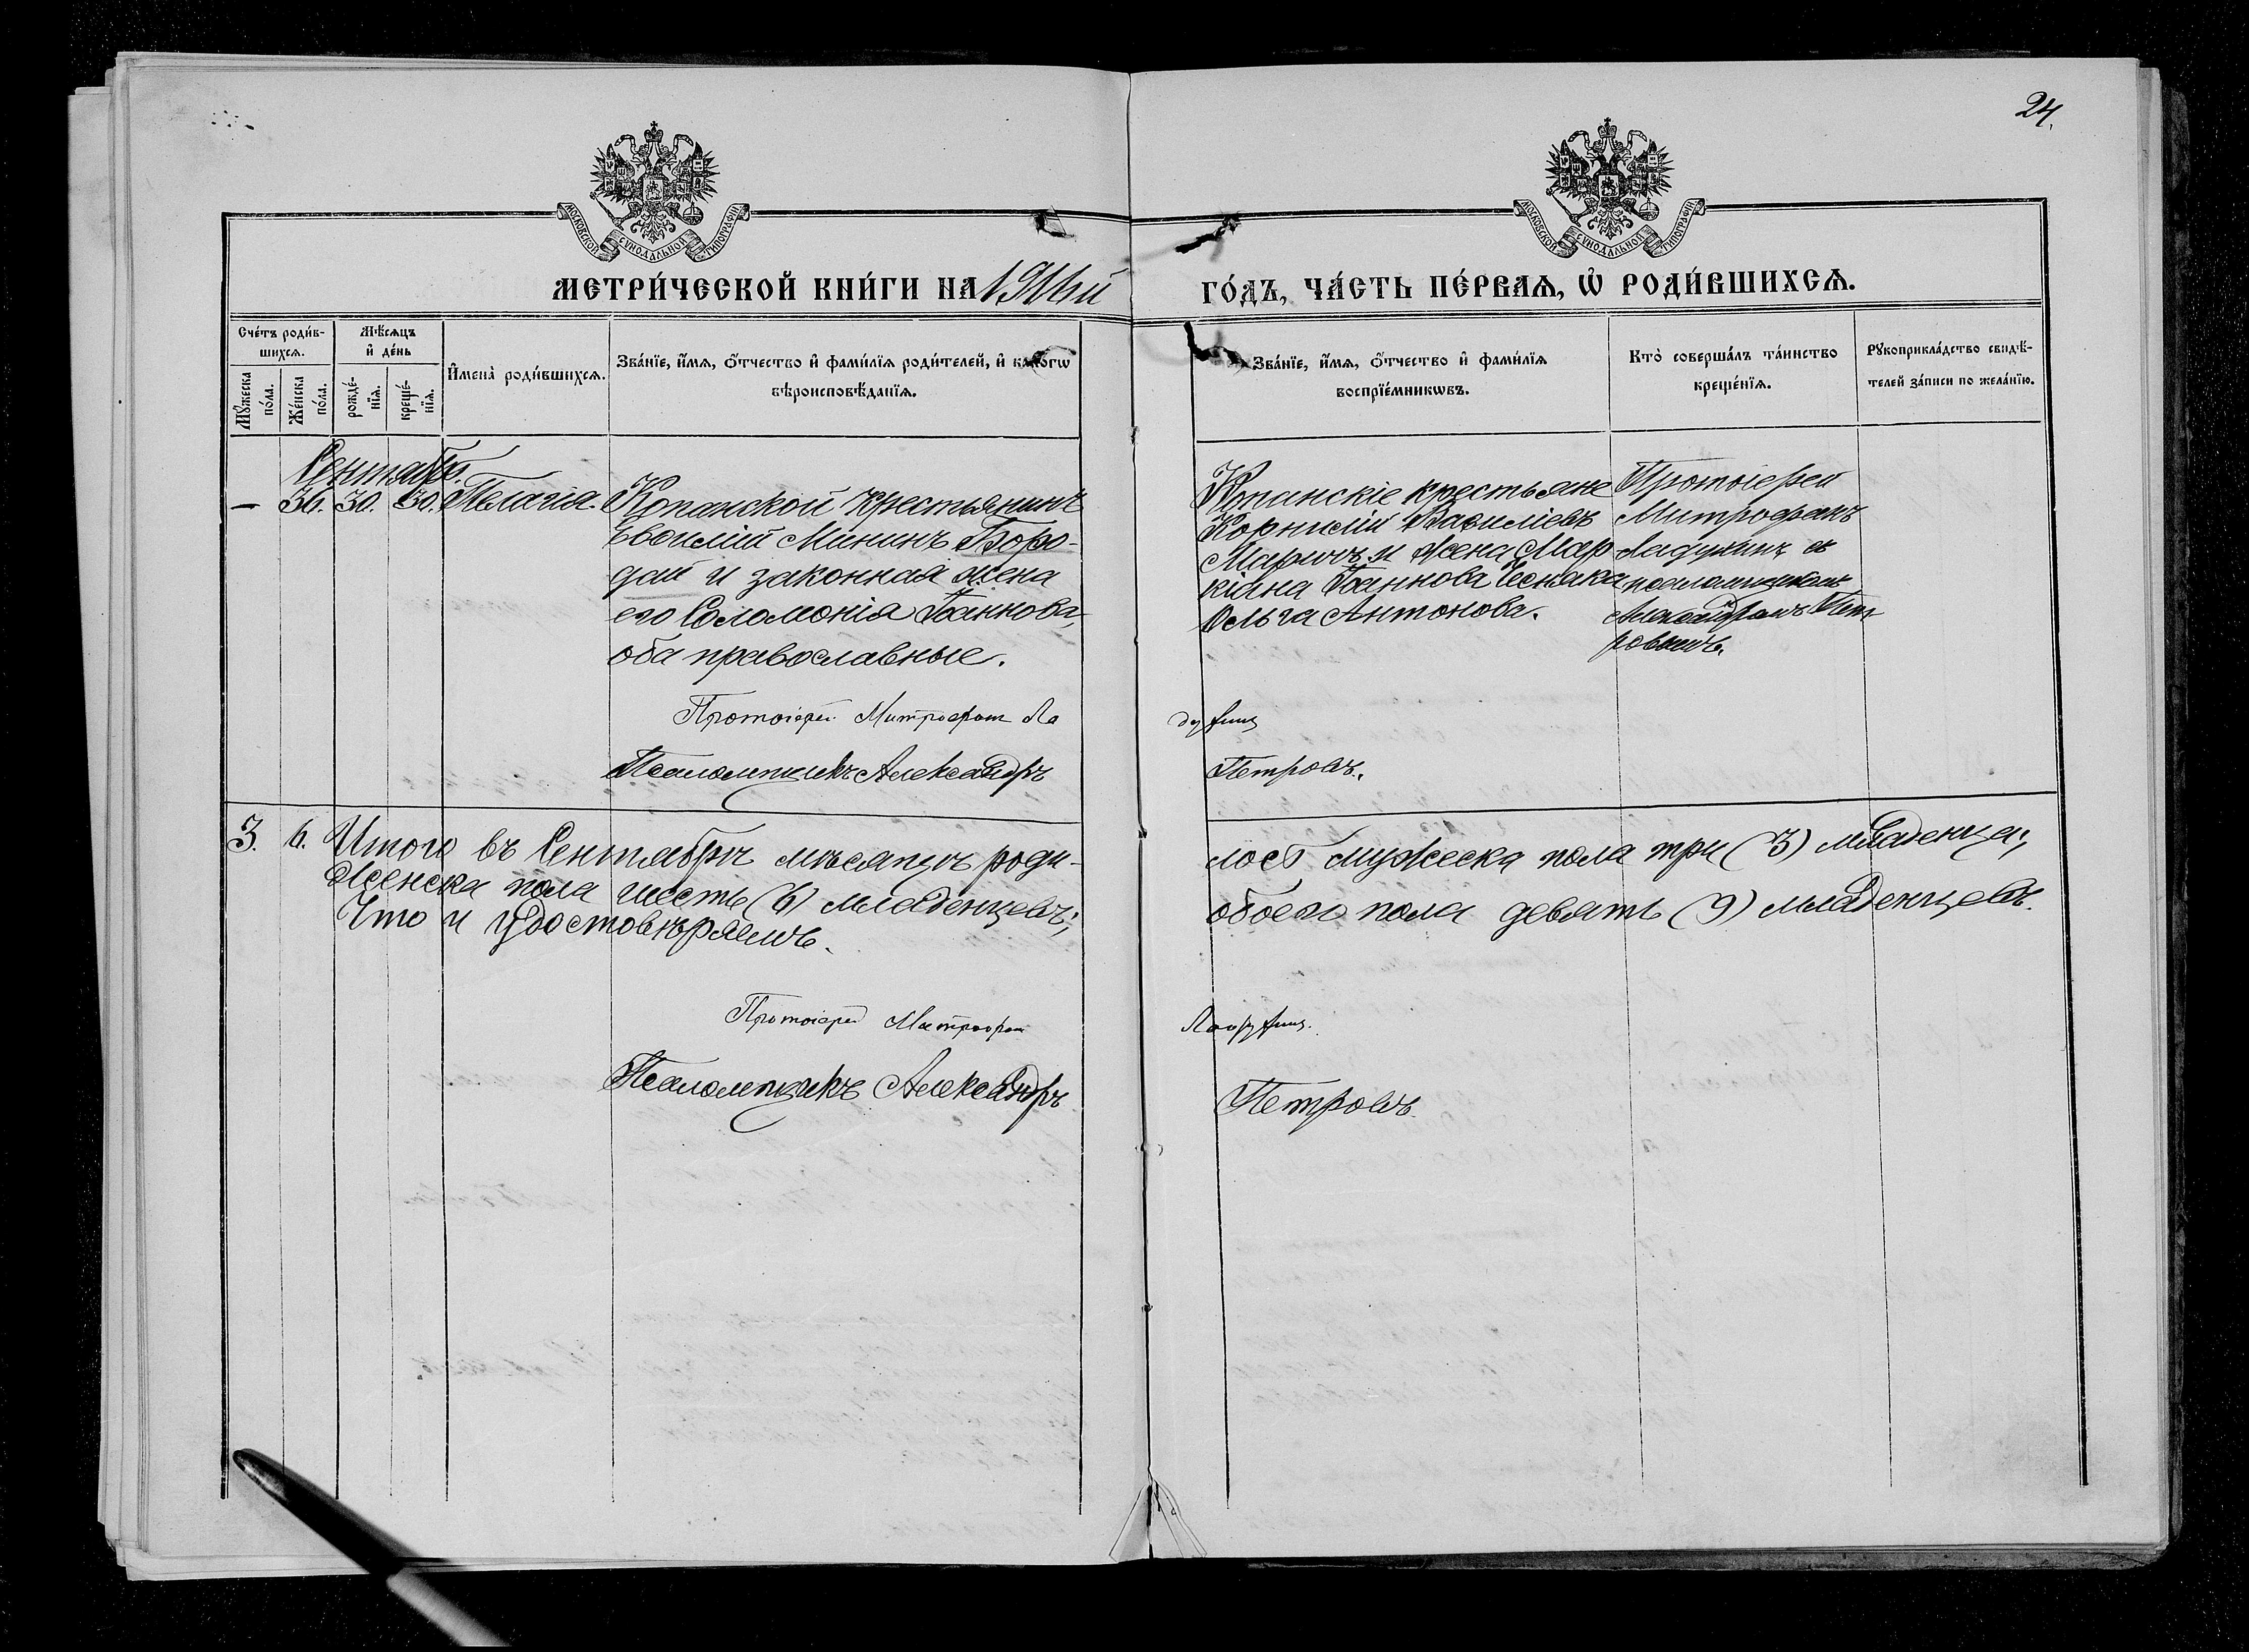 24.
МОСКОВСКОЙ СѴНОДАЛЬНОЙ ТИПОГРАФІИ
МОСКОВСКОЙ СѴНОДАЛЬНОЙ ТИПОГРАФІИ
МЕТРИ́ЧЕСКОЙ КНИ́ГИ НА 1914й
ГО́ДЪ, ЧА́СТЬ ПЕ́РВАѦ, Ѡ҆ РОДИ́ВШИХСѦ.
Сче́тъ роди́в-
шихсѧ.
Мꙋ́жеска по́ла.
Же́нска по́ла.
Мѣ́сѧцъ
и҆ де́нь
рожде́-
нїѧ.
креще́-
нїѧ.
И҆мена̀ роди́вшихсѧ.
Зва́нїе, и҆́мѧ, ѻ҆́тчество и҆ фами́лїѧ роди́телей, и҆ како́гѡ
вѣроисповѣ́данїѧ.
Зва́нїе, и҆́мѧ, ѻ҆́тчество и҆ фами́лїѧ
воспрїе́мникѡвъ.
Кто̀ соверша́лъ та́инство
креще́нїѧ.
Рꙋкоприкла́дство свидѣ́-
телей за́писи по жела́нїю.
Сентябрь.
— 36. 30. 30. Пелагія.
Копанской крестьянинъ
Мининъ Боро-
дай и законная жена
его Соломонія Іоаннова,
оба православные.
Копанскіе крестьяне
Корнилій Василіевъ
и жена Мар
кіана Іоаннова
Ольга Антонова.
Протоіерей
Митрофанъ
Ладухинъ съ
псаломщикомъ
Александромъ Пет
ровымъ.
Протоіерей Митрофанъ Ла
духинъ
Псаломщикъ Александръ
Петровъ.
3. 6. Итого въ Сентябрѣ мѣсяцѣ роди-
лось мужеска пола три (3) младенца;
Женска пола шесть (6) младенцевъ;
обоего пола девять (9) младенцевъ.
Что и удостовѣряемъ.
Протоіерей Митрофанъ
Ладухинъ.
Псаломщикъ Александръ
Петровъ.